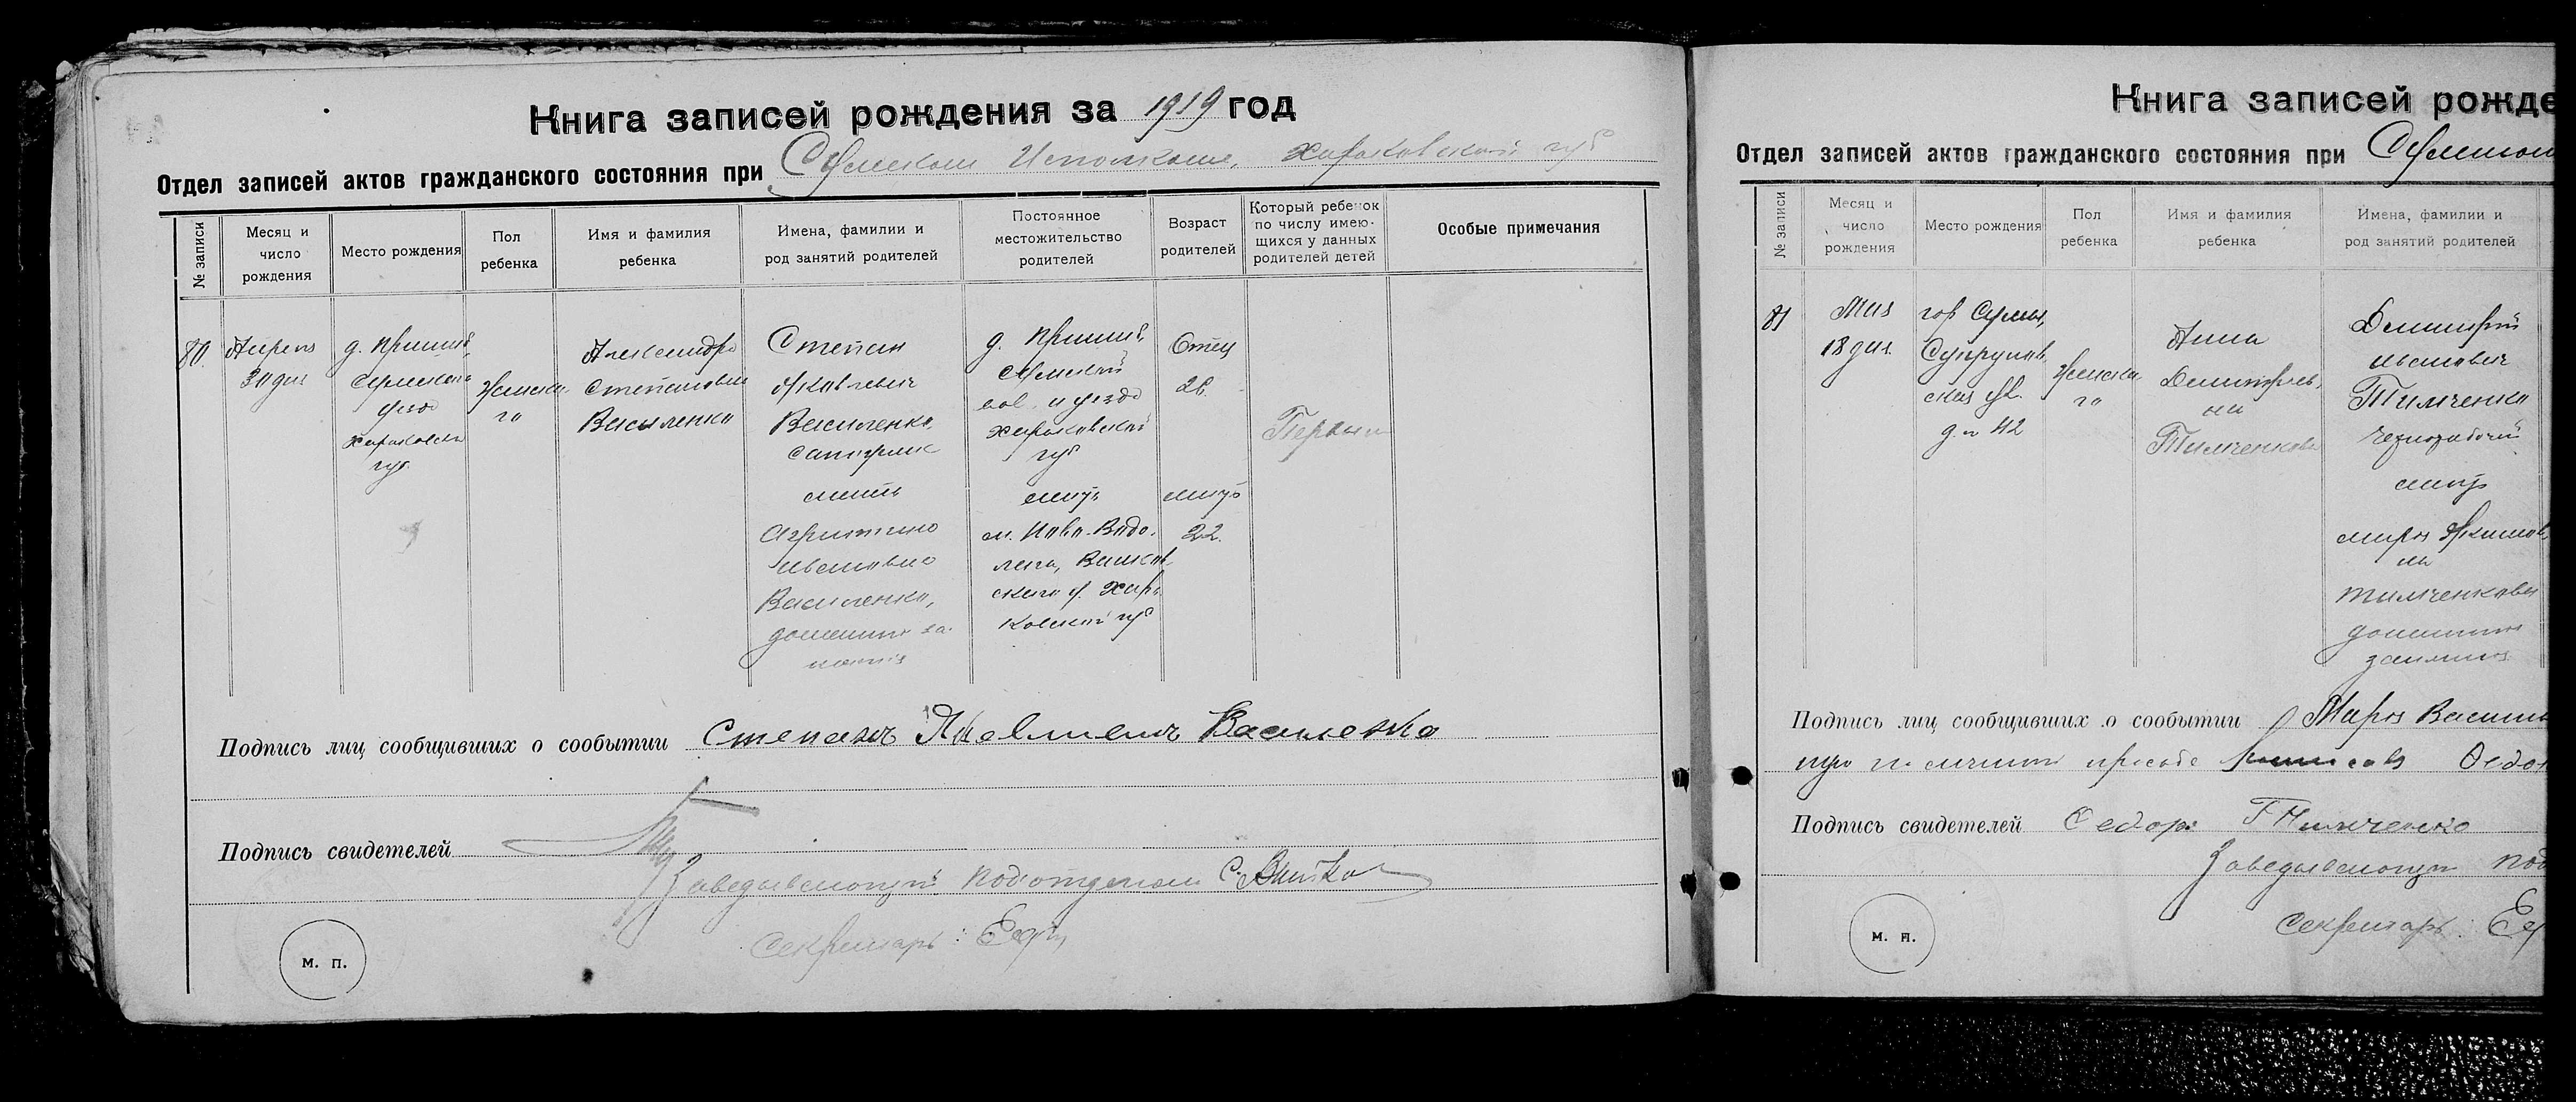 Книга записей рождения за 1919 год
Отдел записей актов гражданского состояния при Сумском Исполкоме, Харьковской губ
№ записи
Месяц и число рождения
Место рождения
Пол ребенка
Имя и фамилия ребенка
Имена, фамилии и род занятий родителей
Постоянное местожительство родителей
Возраст родителей
Который ребенок по числу имеющихся у данных родителей детей
Особые примечания
80.
Апреля
30 дня
Сумского
уезда
Харьковск
губ.
Женска-
го
Александра
Степановна
Василенко
Степан
Яковлевич
Василенко,
мать
Ивановна
Василенко,
домашн. за-
Сумской
вол. и уезда
Харьковской
губ
мать
м. Ново-Водо-
лага, Валков-
ского у. Харь-
ковской губ
Отец
26.
мать
22.
Первый
Подпись лиц сообщивших о сообытии Степанъ Василенко
Подпись свидетелей
Заведывающий подотделом
Секретарь:
м. п.
Книга записей рожде
Отдел записей актов гражданского состояния при Сумском
№ записи
Месяц и число рождения
Место рождения
Пол ребенка
Имя и фамилия ребенка
Имена, фамилии и род занятий родителей
81
Мая
18 дня.
гор Сумы,
Супрунов-
ская ул.
д. № 42
Женска-
го
Анна
Димитриев-
на
Тимченкова
Димитрий
Иванович
Тимченко
чернорабочий
мать
Тимченкова
домашния
занятия
Подпись лиц сообщивших о сообытии
Подпись свидетелей Федоръ Тимченко
Заведывающий под
Секретарь:
м. п.